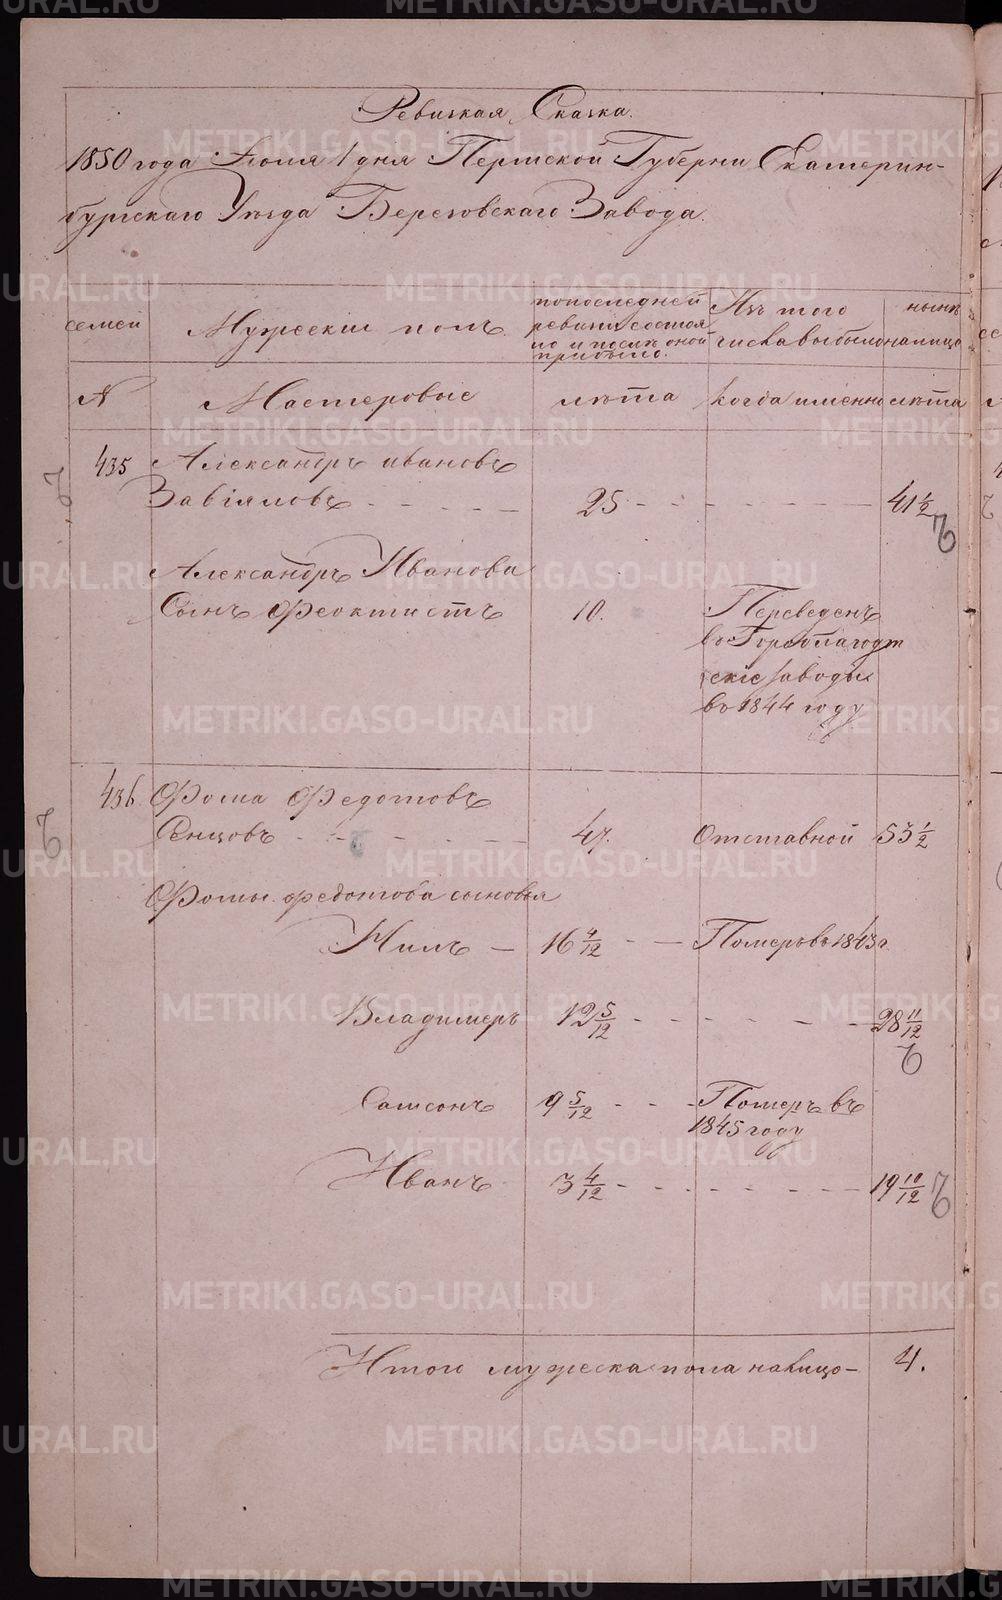 Ревизкая Сказка.
1850 года Июля 1 дня Пермской Губерни Екатерин-
бургскаго Уезда Березовскаго Завода.
семей
Мужескии полъ
попоследней
ревизи состоя-
ло и после оной
прибыло.
Изъ того
числа выбыло
ныне
налицо
№
Мастеровые
лета
когда именно
лета
435
Александръ ивановъ
Завіяловъ
25
41 1/2
Александръ Иванова
Сынъ Феоктистъ
10.
Переведенъ
во Гороблагодат
скіе заводы
во 1844 году
436
Фома Федотовъ
Сенцовъ
47.
Отставной
53 1/2
Фомы федотова сыновья
Нилъ
16 4/12
Померъ въ 1843 г.
Владимеръ
12 5/12
28 11/12
Самсонъ
9 5/12
Померъ въ
1845 году
Иванъ
3 4/12
19 10/12
Итого мужеска пола налицо-
4.
METRIKI.GASO-URAL.RU